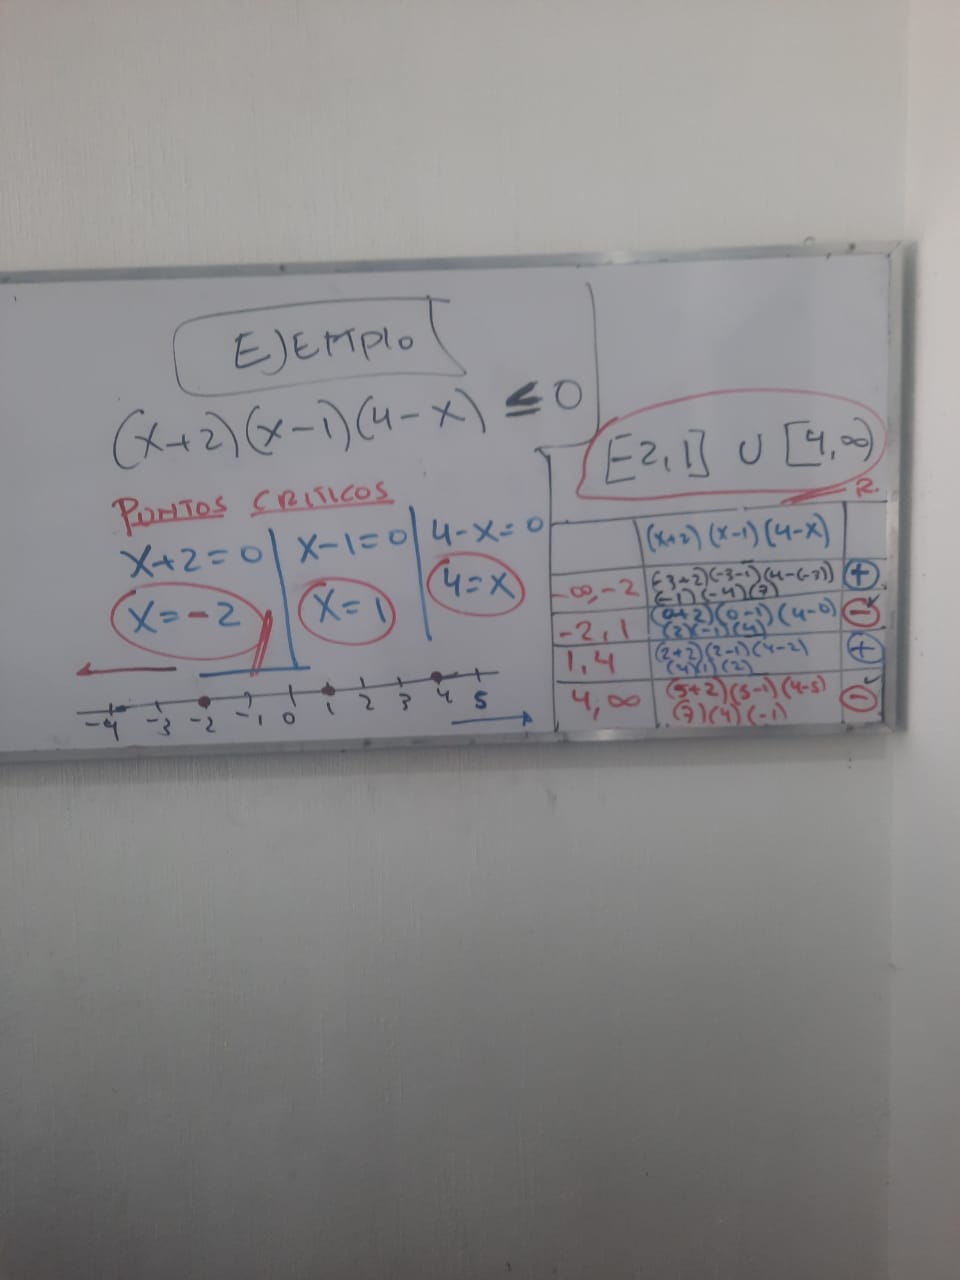 EJEMPlo
(x+2)(x-1)(4-x) ≤ 0
PUNTOS CRITICOS
x+2=0 | x-1=0 | 4-x=0
x=-2 | x=1 | 4=x
-4 -3 -2 -1 0 1 2 3 4 5
[-2,1] ∪ [4,∞)
R.
(x+2)(x-1)(4-x)
-∞,-2 (-3+2)(-3-1)(4-(-3)) +
(-1)(-4)(7)
-2,1 (0+2)(0-1)(4-0) -
(2)(-1)(4)
1,4 (2+2)(2-1)(4-2) +
(4)(1)(2)
4,∞ (5+2)(5-1)(4-5) -
(7)(4)(-1)